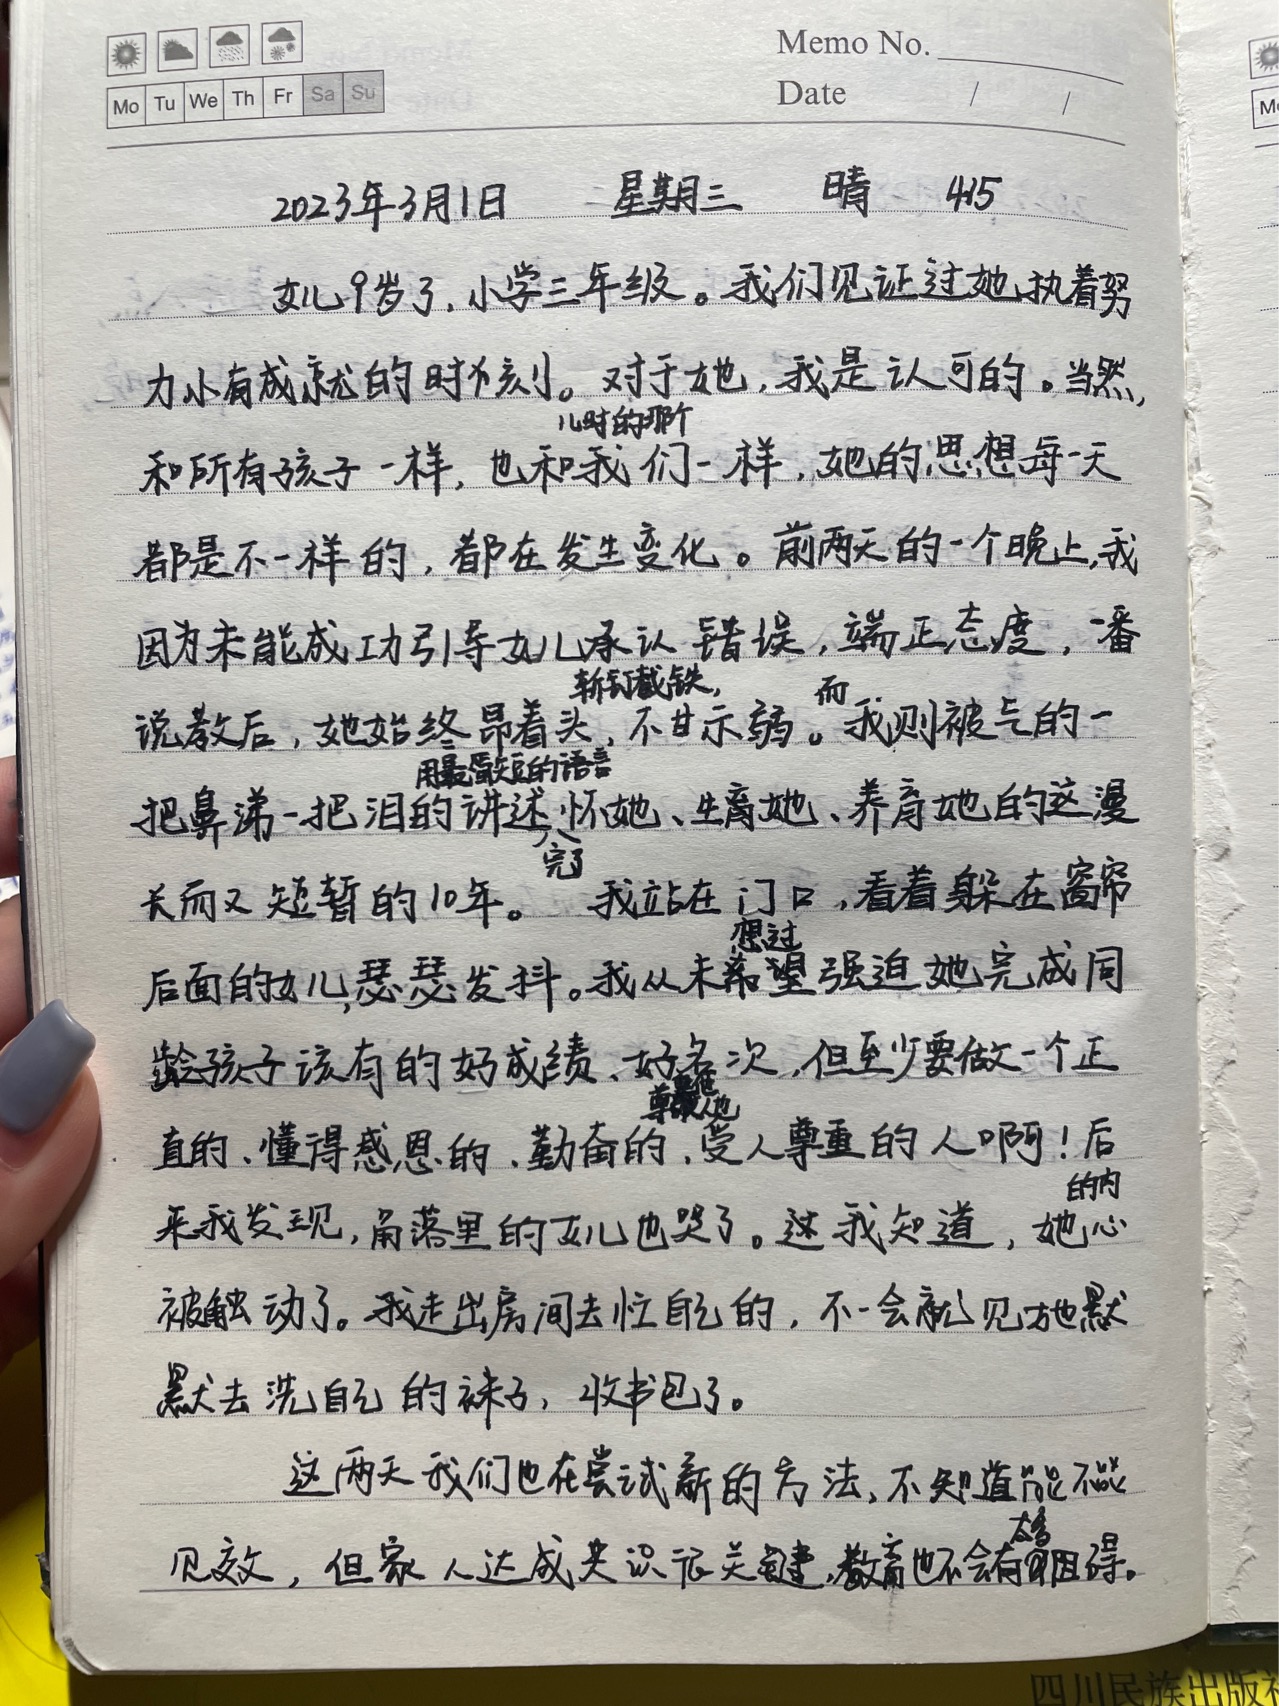 Memo No.
Mo Tu We Th Fr Sa Su
Date / /
2023年3月1日 星期三 晴 415
女儿9岁了,小学三年级。我们见证过她执着努
力小有成就的时刻。对于她,我是认可的。当然,
儿时的那个
和所有孩子一样,也和我们一样,她的思想每一天
都是不一样的,都在发生变化。前两天的一个晚上,我
因为未能成功引导女儿承认错误,端正态度,一番
斩钉截铁, 而
说教后,她始终昂着头,不甘示弱。我则被气的一
用最简短的语言
把鼻涕一把泪的讲述怀她、生育她、养育她的这漫
完了
长而又短暂的10年。 我站在门口,看着躲在窗帘
想过
后面的女儿,瑟瑟发抖。我从未希望强迫她完成同
龄孩子该有的好成绩、好名次,但至少要做一个正
尊敬他人
直的、懂得感恩的、勤奋的、受人尊重的人啊!后
的内
来我发现,角落里的女儿也哭了。这我知道,她心
被触动了。我走出房间去忙自己的,不一会就见她默
默去洗自己的袜子,收书包了。
这两天我们也在尝试新的方法,不知道能不能
太多
见效,但家人达成共识很关键,教育也不会有阻碍。
四川民族出版社
Mo